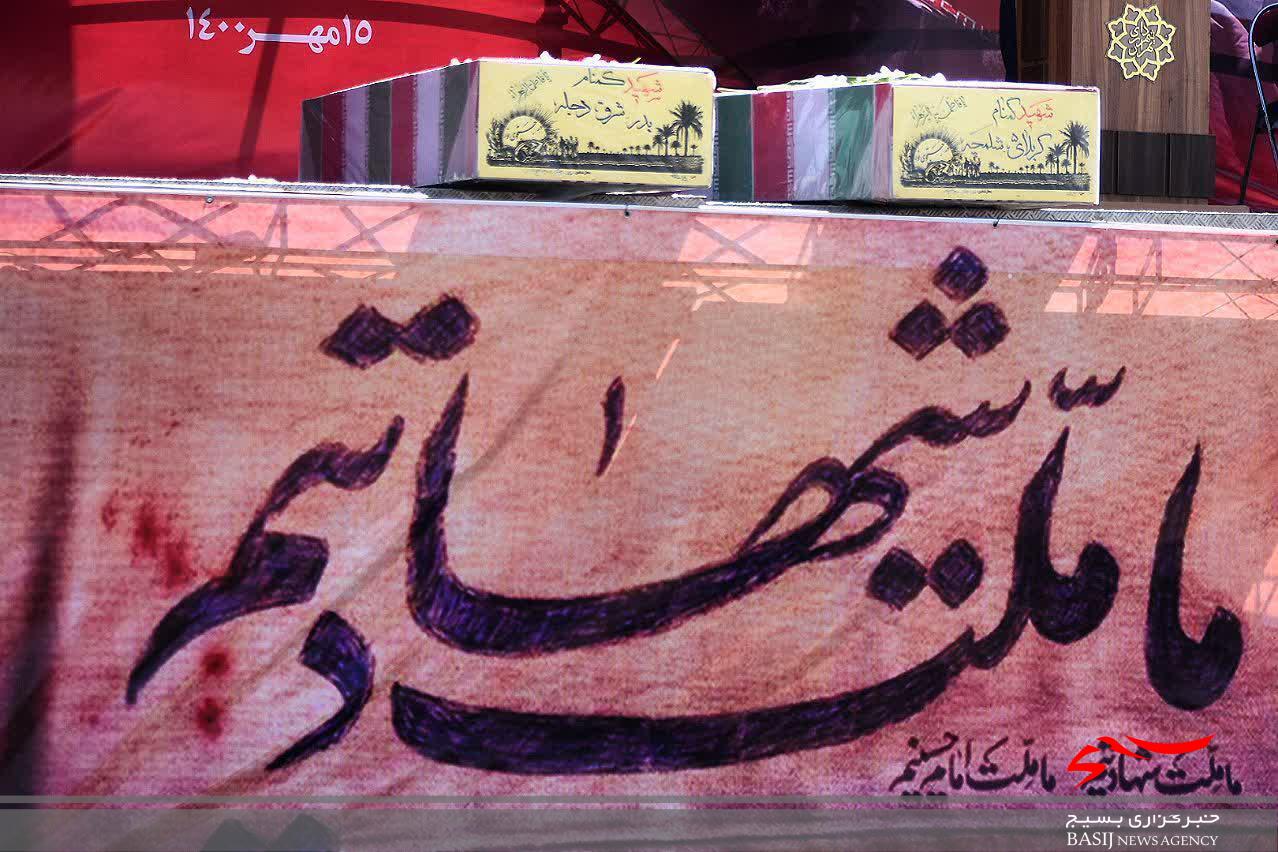 ۱۵ مهر ۱۴۰۰
شهید گمنام
بدر شرق دجله
شهید گمنام
کربلای ۵ شلمچه
ما ملّت شهادتیم
ما ملّت شهادتیم ما ملّت امام حسینیم
خبرگزاری بسیج
BASIJ NEWS AGENCY